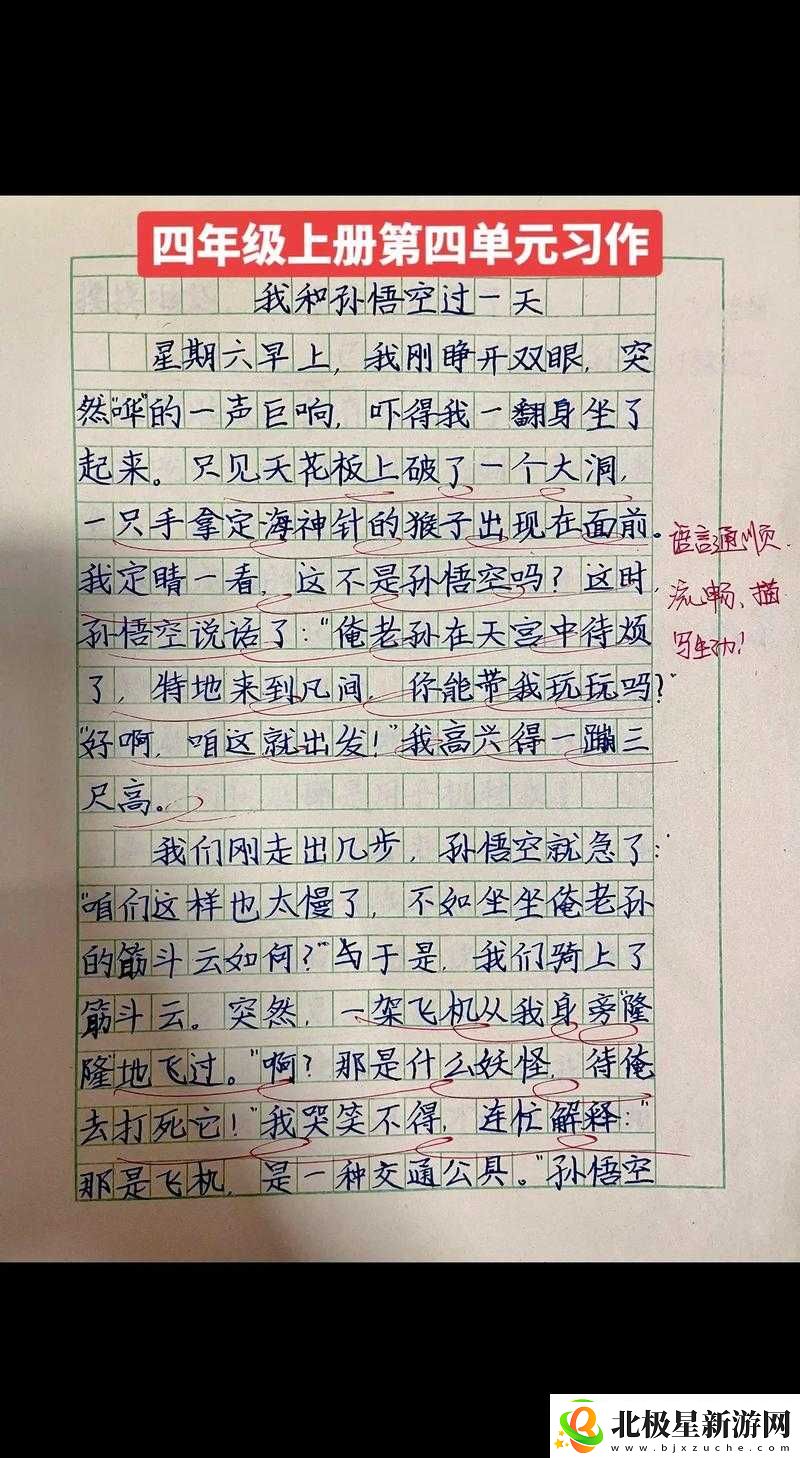 四年级上册第四单元习作
我和孙悟空过一天
星期六早上，我刚睁开双眼，突
然"哗"的一声巨响，吓得我一翻身坐了
起来。只见天花板上破了一个大洞，
一只手拿定海神针的猴子出现在面前。
我定睛一看，这不是孙悟空吗？这时，
孙悟空说话了："俺老孙在天宫中待烦
了，特地来到凡间，你能带我玩玩吗？"
"好啊，咱这就出发！"我高兴得一蹦三
尺高。
语言通顺
流畅、描
写生动！
我们刚走出几步，孙悟空就急了：
"咱们这样也太慢了，不如坐坐俺老孙
的筋斗云如何？"于是，我们骑上了
筋斗云。突然，一架飞机从我身旁"隆
隆"地飞过。"啊？那是什么妖怪，待俺
去打死它！"我哭笑不得，连忙解释："
那是飞机，是一种交通公具。"孙悟空
北极星新游网
www.bjxzuche.com